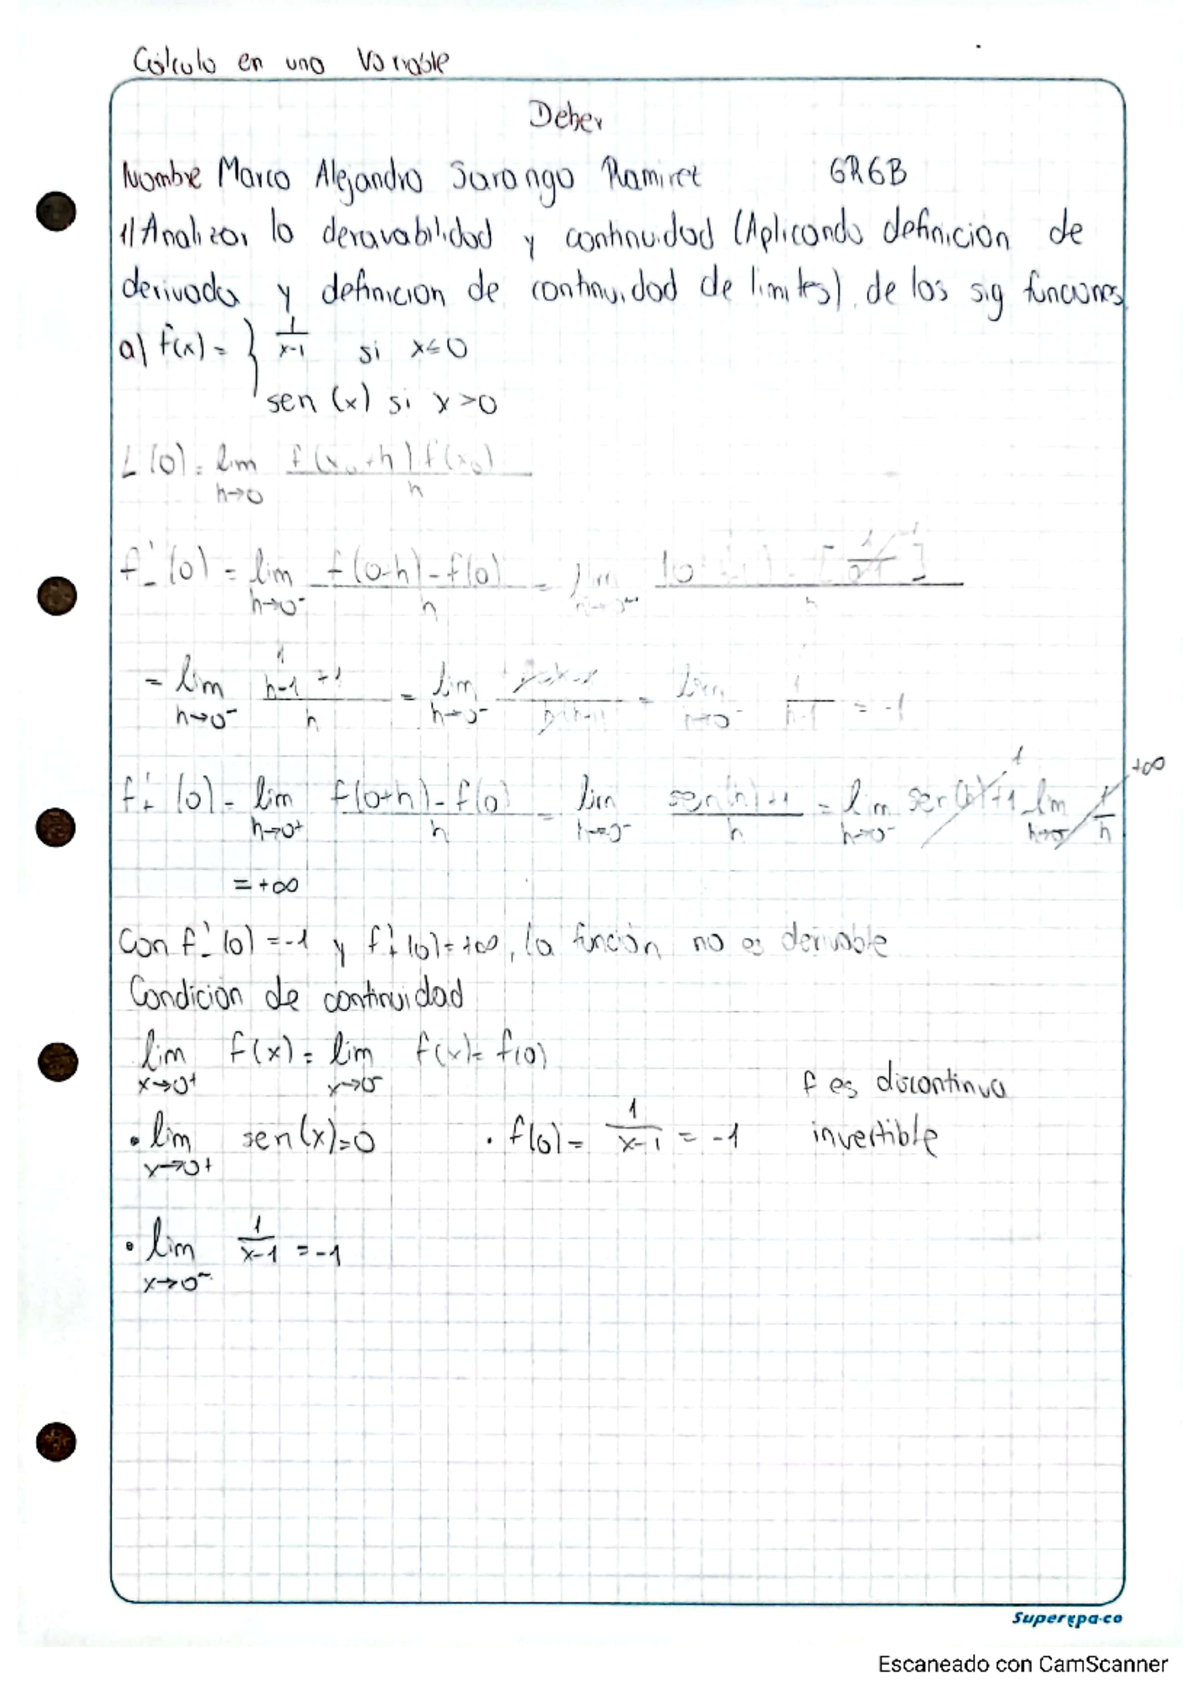 Cálculo en una Variable
Deber
Nombre Marco Alejandro Sarango Ramirez GR6B
1) Analizar la deravabilidad y continuidad (Aplicando definicion de
derivada y definicion de continuidad de limites) de los sig funciones
a) f(x) = { 1/(x-1) si x≤0
sen (x) si x>0
L(0) = lim h→0 f(x0+h) f(x0) / h
f'-(0) = lim h→0- f(0-h)-f(0) / h = lim
= lim h→0- (1/(h-1) +1) / h = lim h→0- = lim 1/(h-1) = -1
f'+(0) = lim h→0+ f(0+h)-f(0) / h = lim h→0- sen(h)+1 / h = lim h→0- sen(h)+1 lim h→0- 1/h 1 +∞
= +∞
Con f'-(0) = -1 y f'+(0) = +∞, la función no es derivable
Condición de continuidad
lim x→0+ f(x) = lim x→0- f(x) = f(0)
f es discontinua
• lim x→0+ sen(x)=0 • f(0) = 1/(x-1) = -1 invertible
• lim x→0- 1/(x-1) = -1
Superepaco
Escaneado con CamScanner